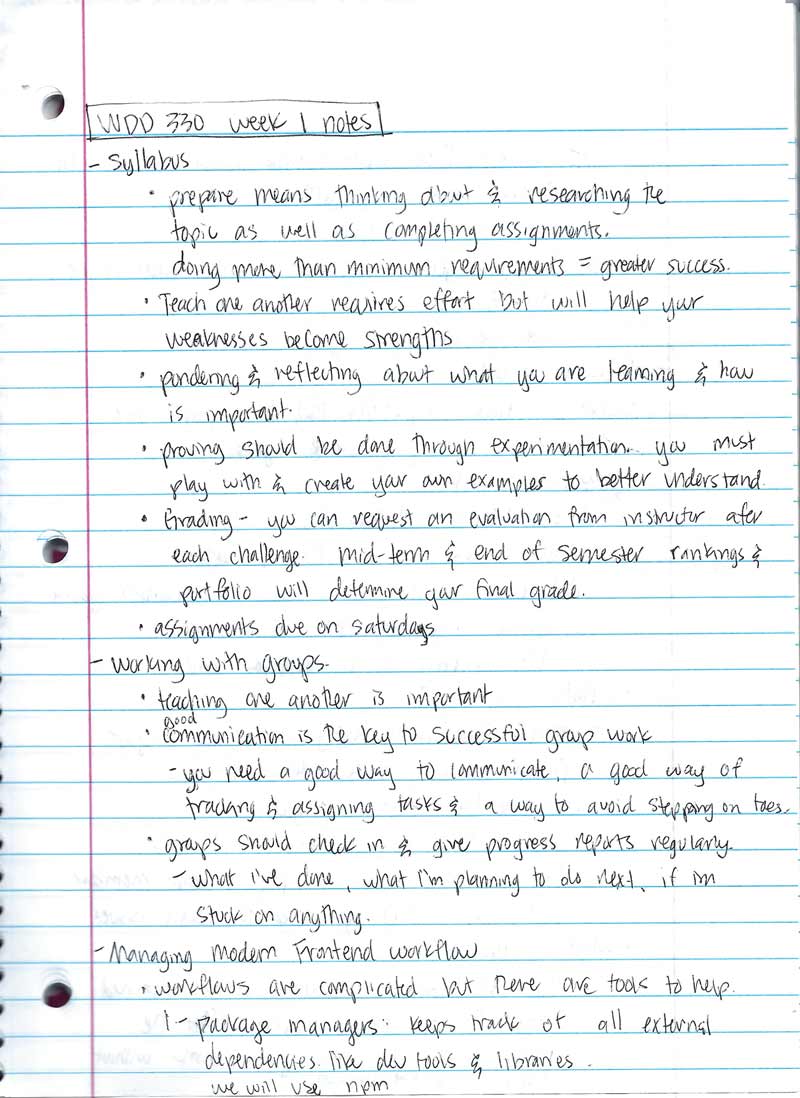 WDD 330 week 1 notes
- Syllabus
• prepare means thinking about & researching the
topic as well as completing assignments.
doing more than minimum requirements = greater success.
• Teach one another requires effort but will help your
weaknesses become strengths
• pondering & reflecting about what you are learning & how
is important.
• proving should be done through experimentation. you must
play with & create your own examples to better understand.
• Grading - you can request an evaluation from instructor after
each challenge. mid-term & end of semester rankings &
portfolio will determine your final grade.
• assignments due on Saturdays
- Working with groups.
• teaching one another is important
good
• Communication is the key to successful group work
- you need a good way to communicate, a good way of
tracking & assigning tasks & a way to avoid stepping on toes.
• groups should check in & give progress reports regularly.
- what I've done, what I'm planning to do next, if im
stuck on anything.
- Managing modern Frontend workflow
• workflows are complicated but there are tools to help.
1- package managers: keeps track of all external
dependencies. like dev tools & libraries.
we will use npm